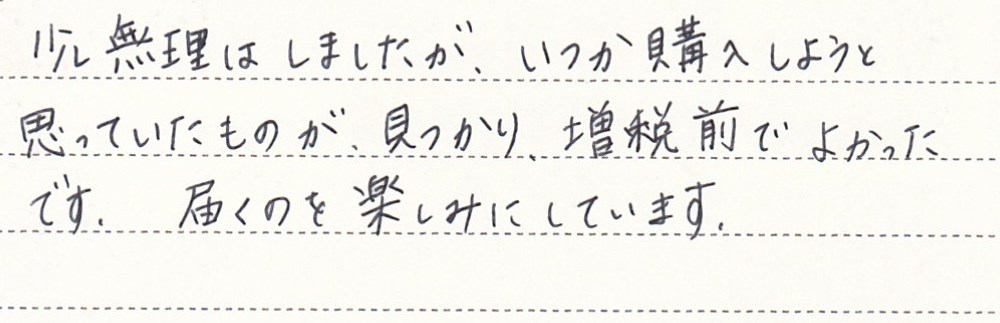 少し無理はしましたが、いつか購入しようと
思っていたものが、見つかり、増税前でよかった
です. 届くのを楽しみにしています.